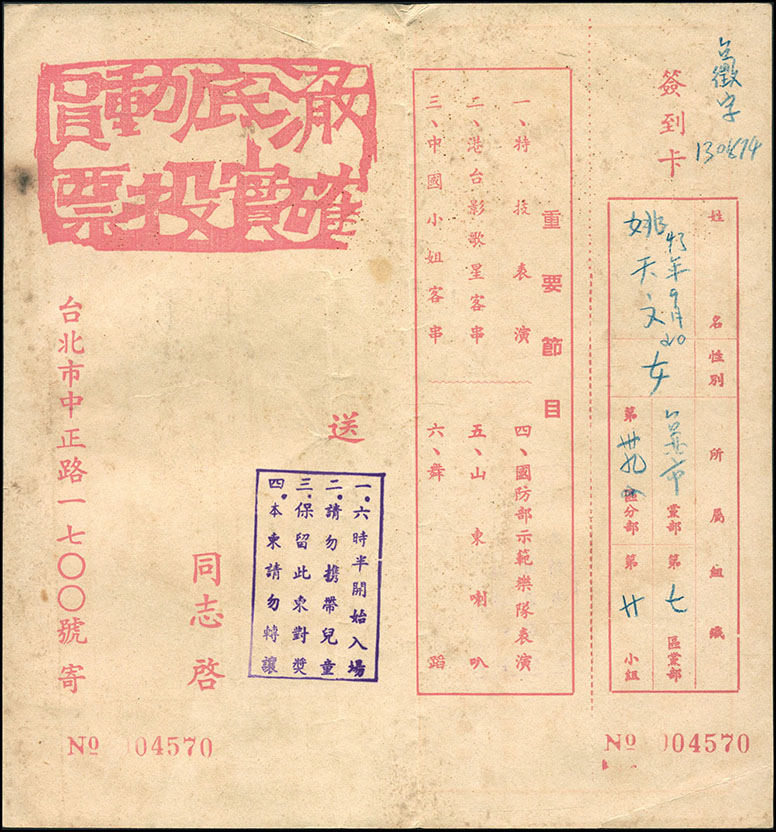 簽到卡
姓名
姚天文
性別
女
所屬組織
台北市黨部
第七區黨部
第 區分部
第廿小組
№ 004570
重要節目
一、特技表演
二、港台影歌星客串
三、中國小姐客串
四、國防部示範樂隊表演
五、山東喇叭
六、舞蹈
澈底動員
確實投票
送
同志啓
一.六時半開始入場
二.請勿携帶兒童
三.保留此柬對獎
四.本柬請勿轉讓
台北市中正路一七〇〇號寄
№ 004570